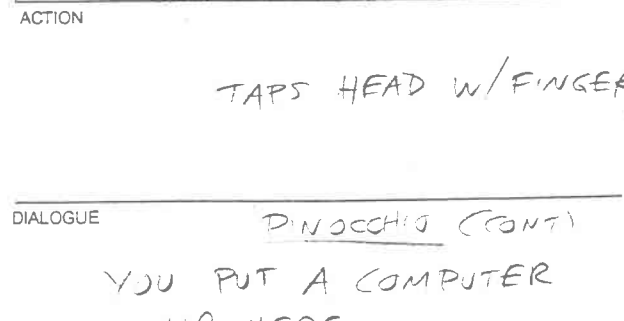 ACTION
TAPS HEAD W/FINGER
DIALOGUE
PINOCCHIO (CONT)
YOU PUT A COMPUTER
UP HERE